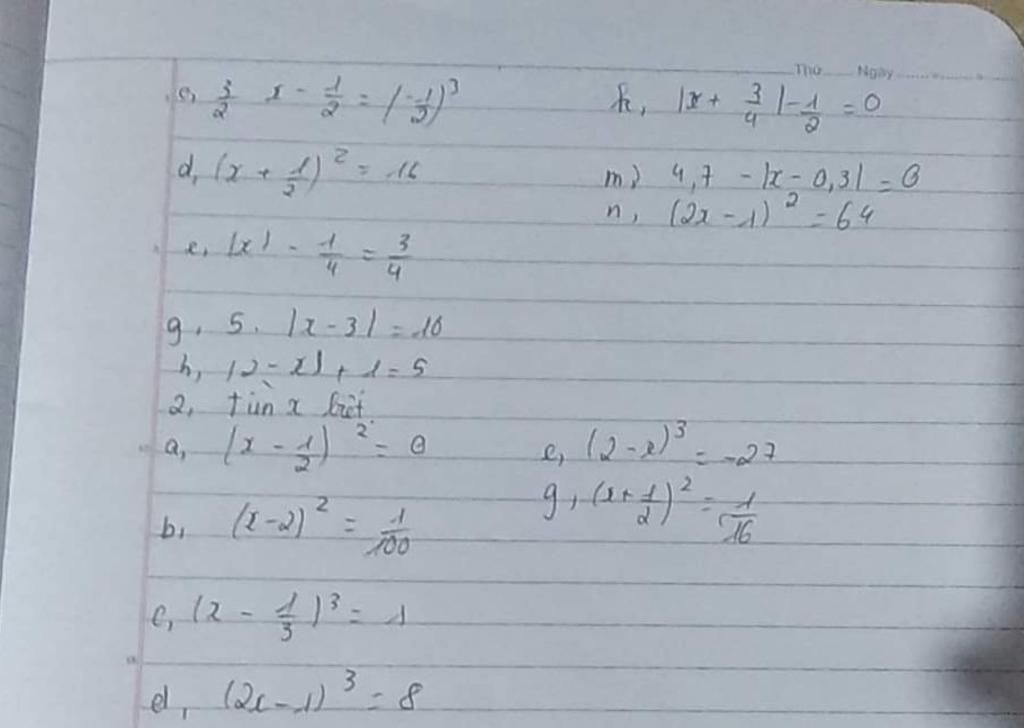 Thứ ........ Ngày ................
c, 3/2 x - 1/2 = (-1/2)³
k, |x + 3/4| - 1/2 = 0
d, (x + 1/2)² = 16
m, 4,7 - |x - 0,3| = 0
n, (2x - 1)² = 64
e, |x| - 1/4 = 3/4
g, 5. |x - 3| = 10
h, |2 - x| + 1 = 5
2, tìm x biết
a, (x - 1/2)² = 0
e, (2 - x)³ = -27
b, (x - 2)² = 1/100
g, (x + 1/2)² = 1/16
c, (x - 1/3)³ = 1
d, (2x - 1)³ = 8